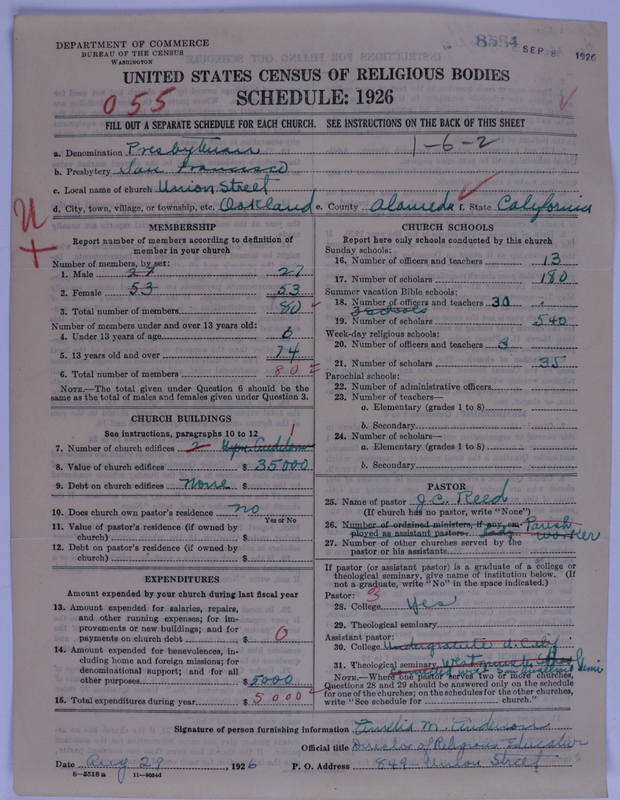 DEPARTMENT OF COMMERCE
BUREAU OF THE CENSUS
WASHINGTON
8584 SEP 8 1926
UNITED STATES CENSUS OF RELIGIOUS BODIES
SCHEDULE: 1926
055
FILL OUT A SEPARATE SCHEDULE FOR EACH CHURCH. SEE INSTRUCTIONS ON THE BACK OF THIS SHEET
a. Denomination Presbyterian 1-6-2
b. Presbytery San Francisco
c. Local name of church Union Street
d. City, town, village, or township, etc. Oakland e. County Alameda f. State California
MEMBERSHIP
Report number of members according to definition of
member in your church
Number of members, by sex:
1. Male 27 27
2. Female 53 53
3. Total number of members 80
Number of members under and over 13 years old:
4. Under 13 years of age 6
5. 13 years old and over 74
6. Total number of members 80
NOTE.—The total given under Question 6 should be
same as the total of males and females given under Question 3.
CHURCH BUILDINGS
See instructions, paragraphs 10 to 12
7. Number of church edifices 2 1
8. Value of church edifices $ 35000
9. Debt on church edifices None $
10. Does church own pastor's residence no
Yes or No
11. Value of pastor's residence (if owned by
church) $
12. Debt on pastor's residence (if owned by
church) $
EXPENDITURES
Amount expended by your church during last fiscal year
13. Amount expended for salaries, repairs,
and other running expenses; for im-
provements or new buildings; and for
payments on church debt $ 0
14. Amount expended for benevolences, in-
cluding home and foreign missions; for
denominational support; and for all
other purposes $ 5000
15. Total expenditures during year $ 5000
CHURCH SCHOOLS
Report here only schools conducted by this church
Sunday schools:
16. Number of officers and teachers 13
17. Number of scholars 180
Summer vacation Bible schools:
18. Number of officers and teachers 30
3 schools
19. Number of scholars 540
Week-day religious schools:
20. Number of officers and teachers 3
21. Number of scholars 35
Parochial schools:
22. Number of administrative officers
23. Number of teachers—
a. Elementary (grades 1 to 8)
b. Secondary
24. Number of scholars—
a. Elementary (grades 1 to 8)
b. Secondary
PASTOR
25. Name of pastor J. C. Reed
(If church has no pastor, write "None")
26. Number of ordained ministers, if any, em-
ployed as assistant pastors. Lady Parish worker
27. Number of other churches served by the
pastor or his assistants
If pastor (or assistant pastor) is a graduate of a college or
theological seminary, give name of institution below. (If
not a graduate, write "No" in the space indicated.)
Pastor: 3
28. College Yes
29. Theological seminary
Assistant pastor:
30. College Undergraduate U. Calif
31. Theological seminary
NOTE.—Where one pastor serves two or more churches,
Questions 28 and 29 should be answered only on the schedule
for one of the churches; on the schedules for the other churches,
write "See schedule for church."
Signature of person furnishing information Amelia M. Anderson
Official title Director of Religious Education
Date Aug 29, 1926 P. O. Address 849 Union Street
8-5518a 11-9034d